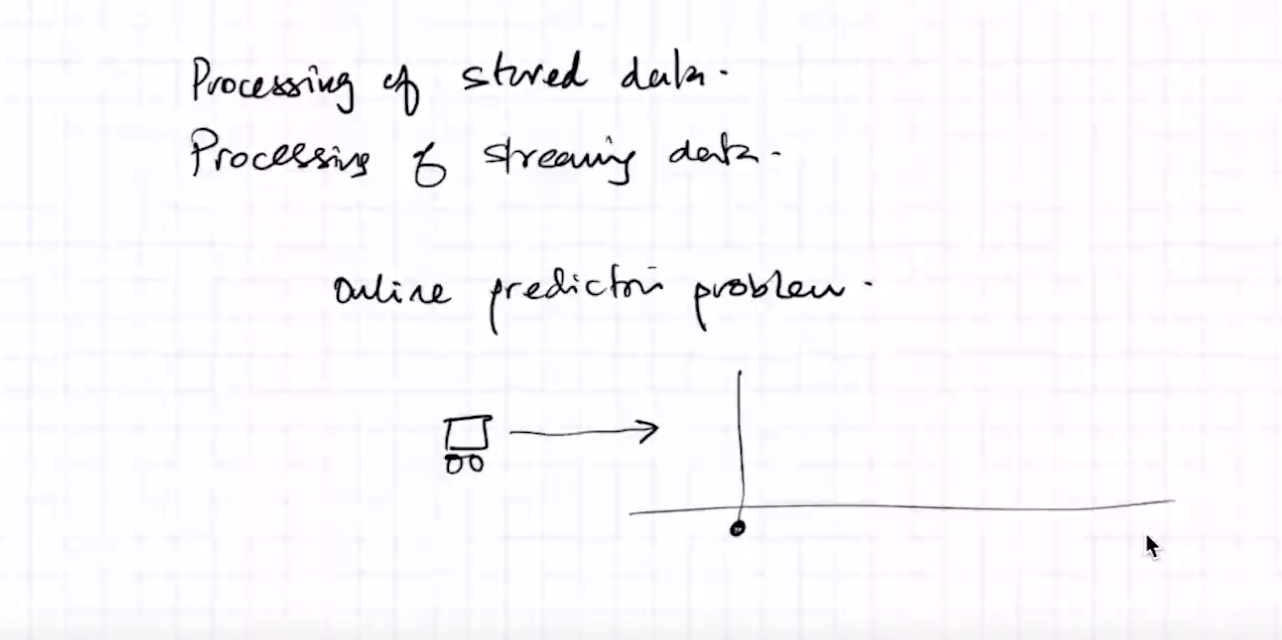 Processing of stored data.
Processing of streaming data.
Online prediction problem.